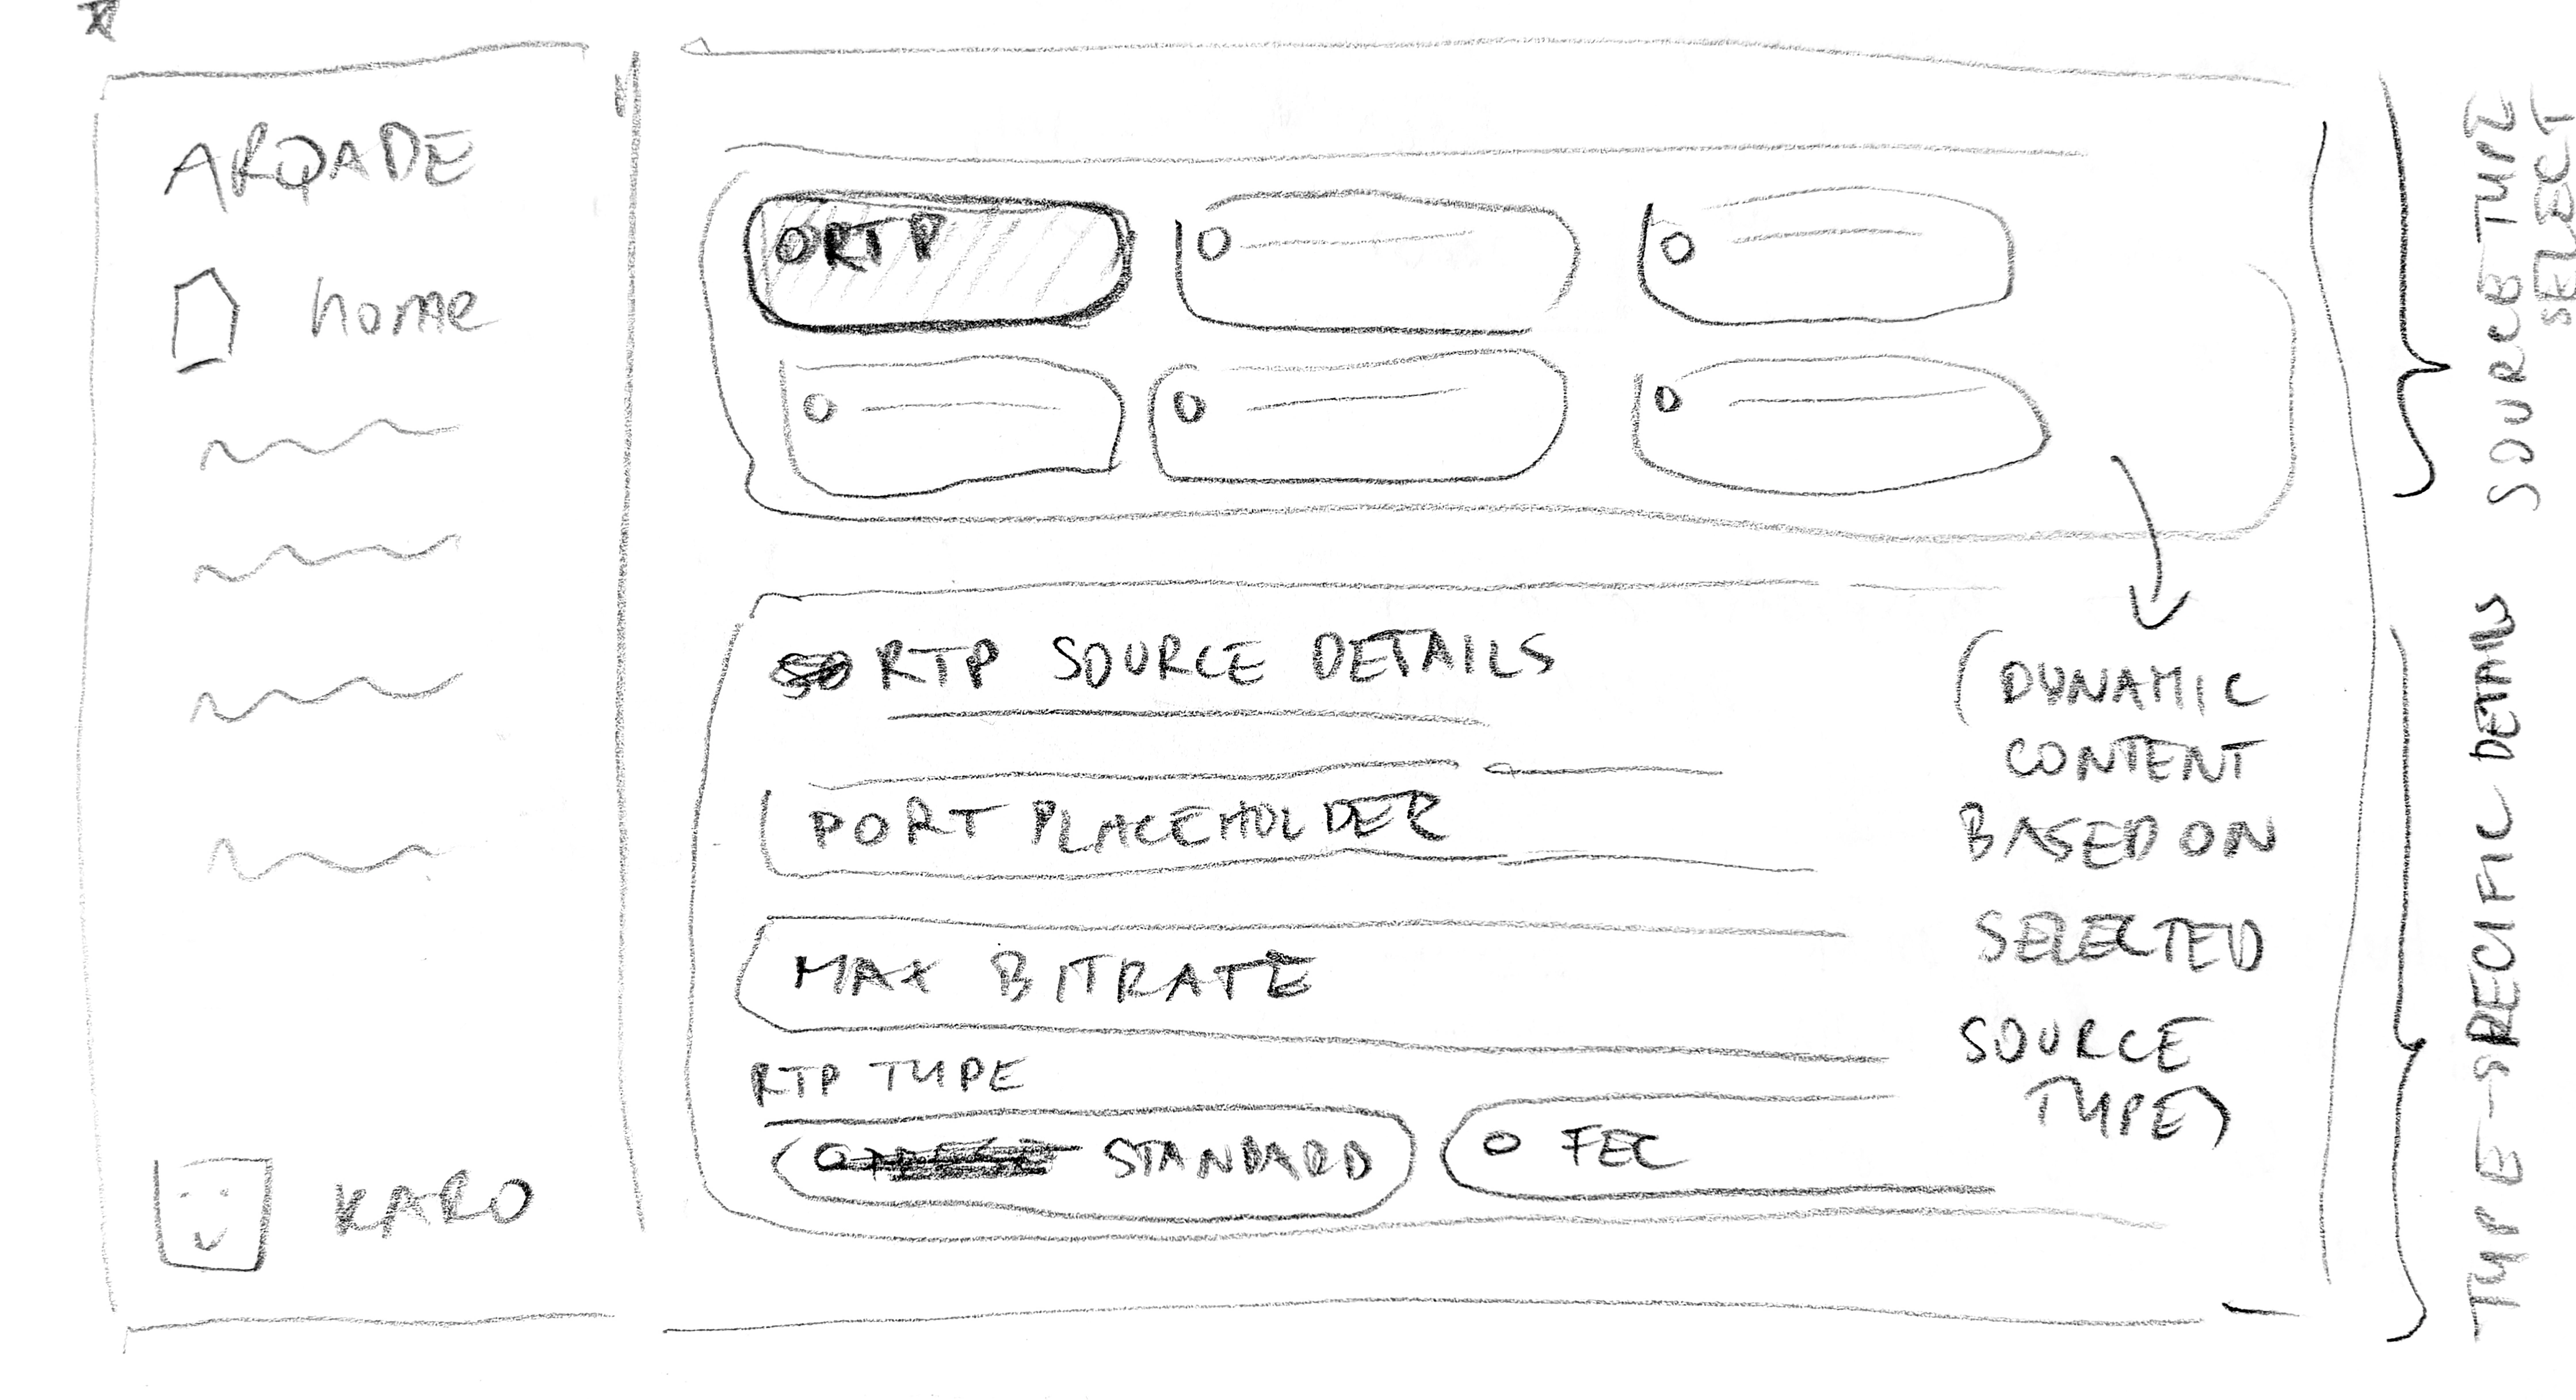 ARQADE
home
KARO
RTP
RTP SOURCE DETAILS
PORT PLACEHOLDER
MAX BITRATE
RTP TYPE
STANDARD
FEC
(DYNAMIC
CONTENT
BASED ON
SELECTED
SOURCE
TYPE)
SOURCE TYPE
SELECT
TYPE-SPECIFIC DETAILS